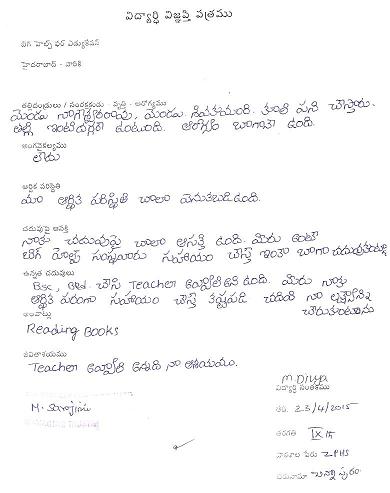 విద్యార్థి విజ్ఞప్తి పత్రము
బిగ్ హెల్ప్ ఫర్ ఎడ్యుకేషన్
హైదరాబాద్ - వారికి
తల్లిదండ్రులు / సంరక్షకుడు - వృత్తి - ఆరోగ్యము
మెండు నాగేశ్వరరావు, మెండు పని చేస్తారు.
తల్లి ఇంటిదగ్గర ఉంటుంది. ఆరోగ్యం బాగానే ఉంది.
అంగవైకల్యము
లేదు
ఆర్థిక పరిస్థితి
మా ఆర్థిక పరిస్థితి చాలా వెనుకబడి ఉంది.
చదువుపై ఆసక్తి
నాకు చదువుపై చాలా ఆసక్తి ఉంది. మీరు అంటే
బిగ్ హెల్ప్ సంస్థవారు సహాయం చేస్తే ఇంకా బాగా చదువుకుంటాను
ఉన్నత చదువులు
Bsc, Bed. చేసి Teacher అవ్వాలి అని ఉంది. మీరు నాకు
ఆర్థిక పరంగా సహాయం చేస్తే కష్టపడి చదివి నా లక్ష్యాన్ని
చేరుకుంటాను
అలవాట్లు
Reading Books
జీవితాశయము
Teacher అవ్వాలి అన్నది నా ఆశయము.
M Divya
విద్యార్థి సంతకము
M. Sarojini
తేది. 23/4/2015
తరగతి IX th
పాఠశాల పేరు ZPHS
చిరునామా